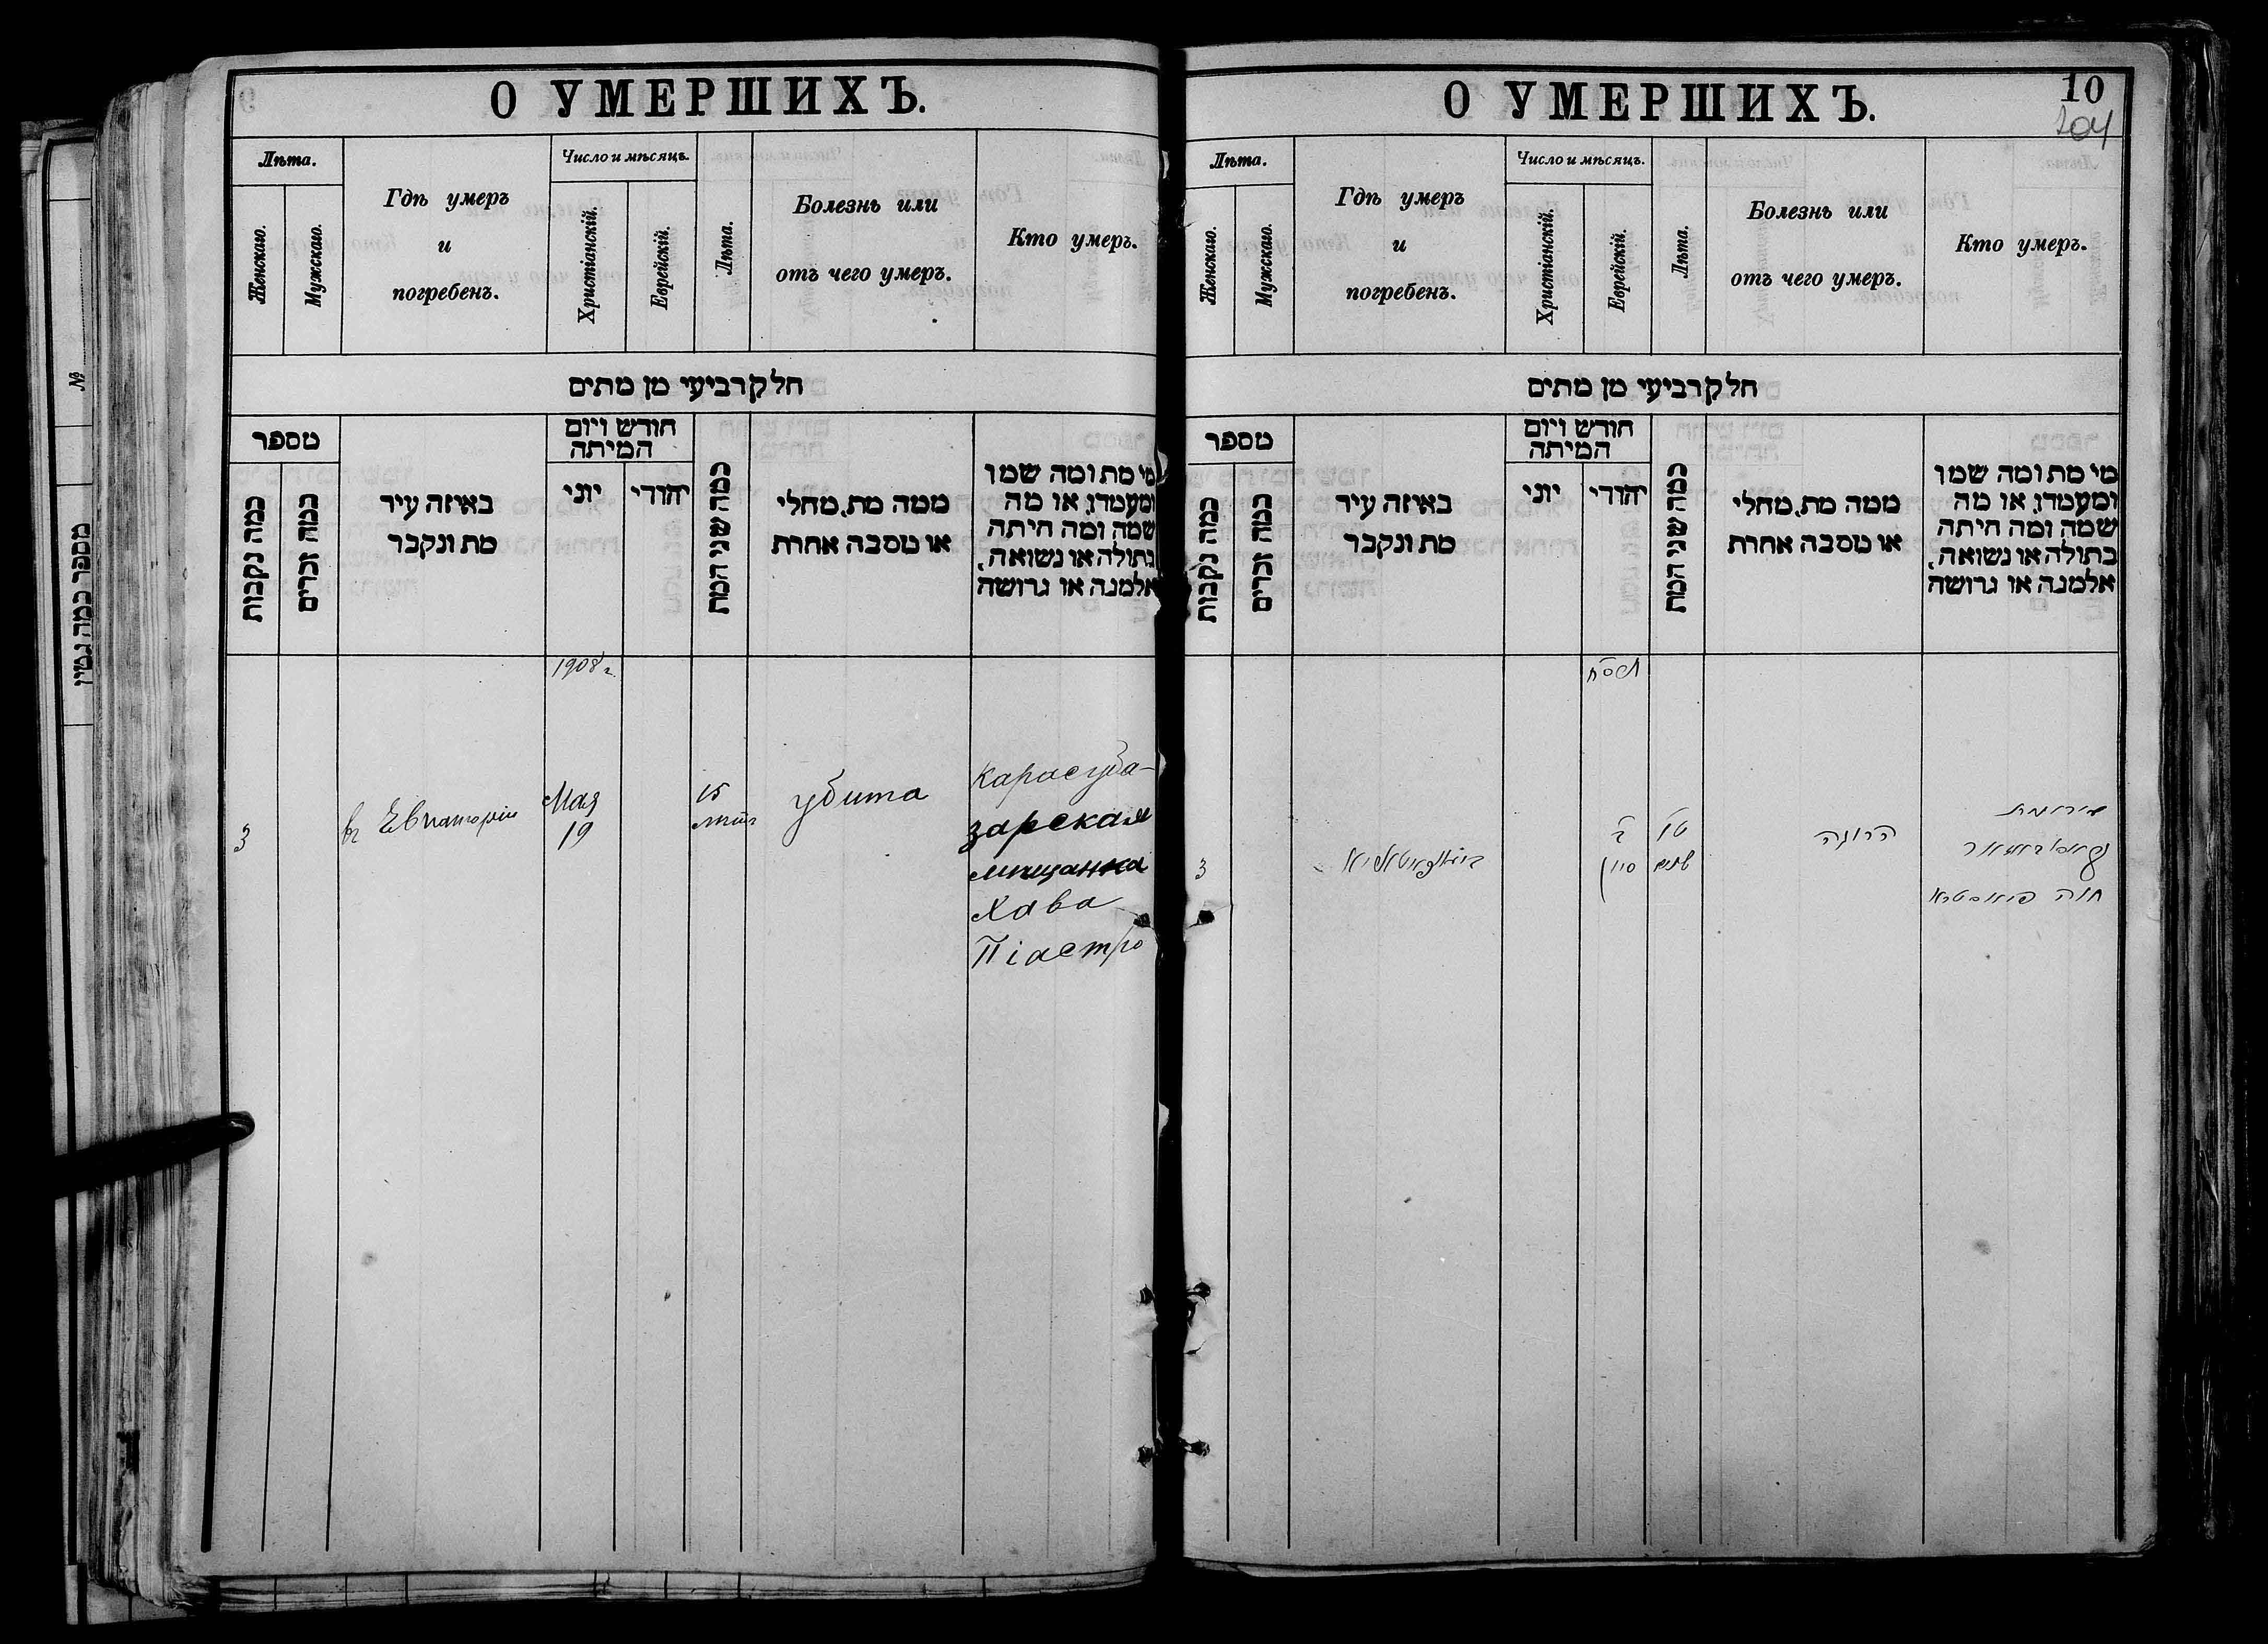 О УМЕРШИХЪ.
Лѣта.
Женскаго.
Мужскаго.
Гдѣ умеръ
и
погребенъ.
Число и мѣсяцъ.
Христіанскій.
Еврейскій.
Лѣта.
Болезнь или
отъ чего умеръ.
Кто умеръ.
חלק רביעי מן מתים
מספר
כמה נקבות
כמה זכרים
באיזה עיר
מת ונקבר
חודש ויום
המיתה
יוני
יהודי
כמה שני המת
ממה מת, מחלי
או מסבה אחרת
מי מת ומה שמו
ומעמדו, או מה
שמה ומה היתה
בתולה או נשואה,
אלמנה או גרושה
1908 г.
3
въ Евпаторіи
Мая
19
15
лѣтъ
убита
Карасуба-
зарская
мѣщанка
Хава
Піастро
№
מספר כמה גטין
О УМЕРШИХЪ.
10
204
Лѣта.
Женскаго.
Мужскаго.
Гдѣ умеръ
и
погребенъ.
Число и мѣсяцъ.
Христіанскій.
Еврейскій.
Лѣта.
Болезнь или
отъ чего умеръ.
Кто умеръ.
חלק רביעי מן מתים
מספר
כמה נקבות
כמה זכרים
באיזה עיר
מת ונקבר
חודש ויום
המיתה
יוני
יהודי
כמה שני המת
ממה מת, מחלי
או מסבה אחרת
מי מת ומה שמו
ומעמדו, או מה
שמה ומה היתה
בתולה או נשואה,
אלמנה או גרושה
3
סיון
טו
שנים
הרוגה
עירונית
חוה פיאסטרא